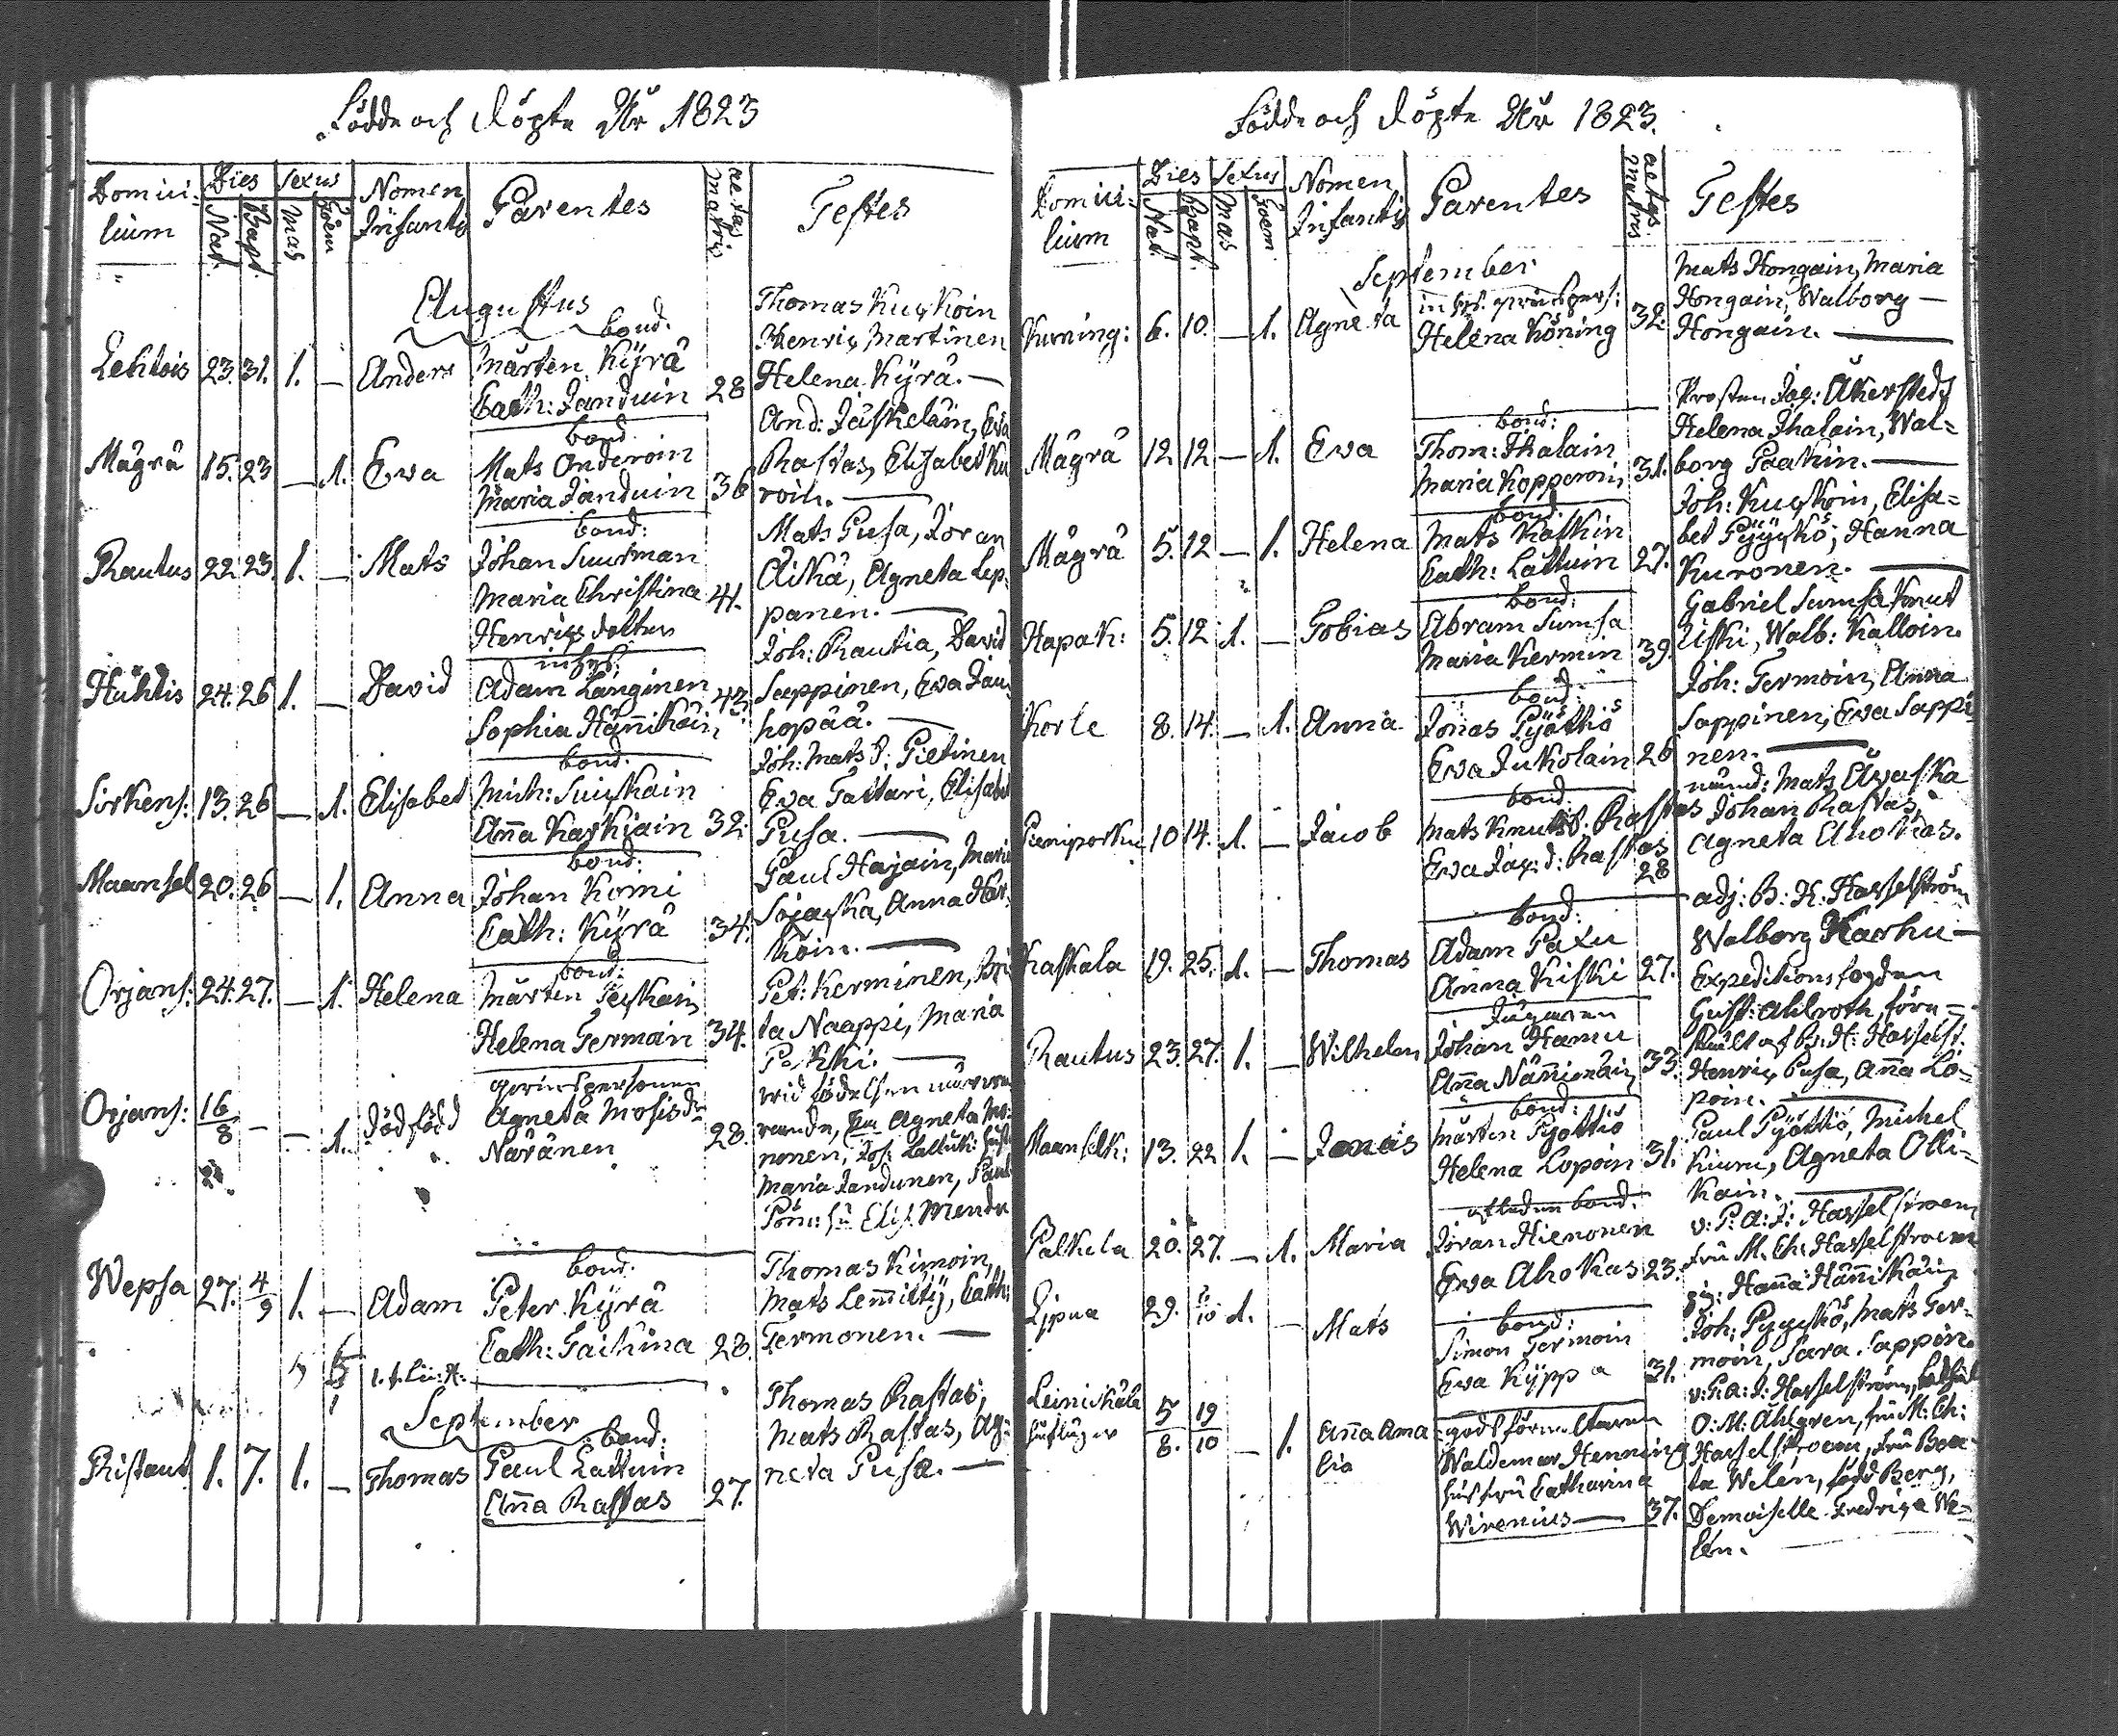 Födde och döpte År 1823
Domici-
lium
Dies
Nat.
Bapt.
Sexus
Mas
Foem
Nomen
Infantis
Parentes
aetas
matris
Testes
Augustus
Lehtois 23. 31. 1. — Anders
bond.
Mårten Kyrä
Cath: Janduin 28
Thomas
Henric Martinen
Helena Kyrä. —
Mägrä 15. 23 — 1. Ewa
bond.
Mats Onderoin
Maria Janduin 36
And: Jäskeläin, Eva
Rastas, Elisabet Ku
roin. —
Rautus 22. 23. 1. — Mats
bond:
Johan Suurman
Maria Christina 41.
Henrics dotter
Mats Pusa, Joran
Äikä, Agneta Lep-
panen. —
24. 26 1. — David
inhys:
Adam Länginen 43.
Sophia Hännikäin
Joh: Rautia, David
Sappinen, Eva Jau-
hopää. —
Sirkens: 13. 26 — 1. Elisabet
bond.
Mich:
Anna 32.
Joh: Mats S: Pietinen
Eva Tattari, Elisabet
Pusa. —
Maansel 20. 26 — 1. Anna
bond:
Johan Komi
Cath: Kyrä 34.
Paul Hajain, Maria
Anna
koin. —
Orjans: 24. 27. — 1. Helena
bond:
Mårten
Helena Terman 34.
Pet: Kerminen, Bri
ta Naappi, Maria
Pekki. —
Orjans: 16/8 — — 1. Dödfödd
qvinspersonen
Agneta Mosisdr
Näränen 28.
wid födelsen närwa
rande, Agneta
nonen,
Maria Jandunen, Paul
Elis. Mendu
Wepsa 27. 4/9 1. — Adam
bond.
Peter Kyrä
Cath: Taitiina 28.
Thomas Kimoin,
Mats Lemitty, Cath:
Termonen. —
5 5
September
Ristaut 1. 7. 1. — Thomas
bond:
Paul Lattuin
Anna Rastas 27.
Thomas Rastas,
Mats Rastas, Ag-
neta Pusa. —
Födde och döpte År 1823.
Domici-
lium
Dies
Nat.
Bapt.
Sexus
Mas
Foem
Nomen
Infantis
Parentes
aetas
matris
Testes
September
Kuning: 6. 10. — 1. Agneta
inhys. qvinspers:
Helena Köning 32.
Mats Hongain, Maria
Hongain, Walborg —
Hongain. —
Mägrä 12 12 — 1. Eva
bond:
Thom: Ihalain
Maria Kopperoin 31.
Prosten Jac: Åkerstedt
Helena Ihalain, Wal-
borg Paakin. —
Mägrä 5. 12 — 1. Helena
bond.
Mats Kaskin
Cath: Lattuin 27.
Joh: Elisa-
bet Hanna
Kuronen. —
Hapak: 5. 12 1. — Tobias
bond:
Abram Sumsa
Maria Kermin 39.
Gabriel Sumsa Knut
Kiski, Walb: Kalloin.
Korle 8. 14. — 1. Anna
bond:
Jonas Pyöttiö
Eva Jukolain 26
Joh: Termoin, Anna
Sappinen, Eva Sappi
nen. —
10 14. 1. — Jacob
bond:
Mats Knuts S. Rastas
Eva Jac: d: Rastas
28
nämd: Mats Äwaska
Johan Rastas,
Agneta Ahokas.
Kaskala 19. 25. 1. — Thomas
bond:
Adam Paxu
Anna Kiski 27.
adj: B: H: Hasselström
Walborg Karhu —
Rautus 23. 27. 1. — Wilhelm
Johan Hamu
Anna Nännimäin 33.
Expeditions fogden
Gust: Ahlroth, före-
stält af B: H: Hasselst.
Henric Pusa, Anna Lo-
poin. —
Maanselk: 13. 22 1. — Jonas
bond:
Mårten Pyöttiö
Helena Lopoin 31.
Paul Pyöttiö, Michel
Kiuru, Agneta Olli-
kain. —
Palkela 20. 27. — 1. Maria
bond.
Jöran Hienonen
Ewa Ahokas 23.
v: P: A: J: Hasselstroem
fru M: Ch: Hasselstroem
Hanna Hännikäin
29. 10 1. — Mats
bond:
Simon Termoin
Ewa Kyppa 31.
Joh: Mats Ter-
moin, Sara Sappin.
5/8. 19/10 — 1. Anna Ama
lia
Waldemar Henning
fru Catharina
Wirenius — 37.
v: P: A: J: Hasselström,
O: M: Ahlgren, fru M: Ch:
Hasselstroem, fru Bea-
ta Welen, född Berg,
Demoiselle Fredrica We-
len.